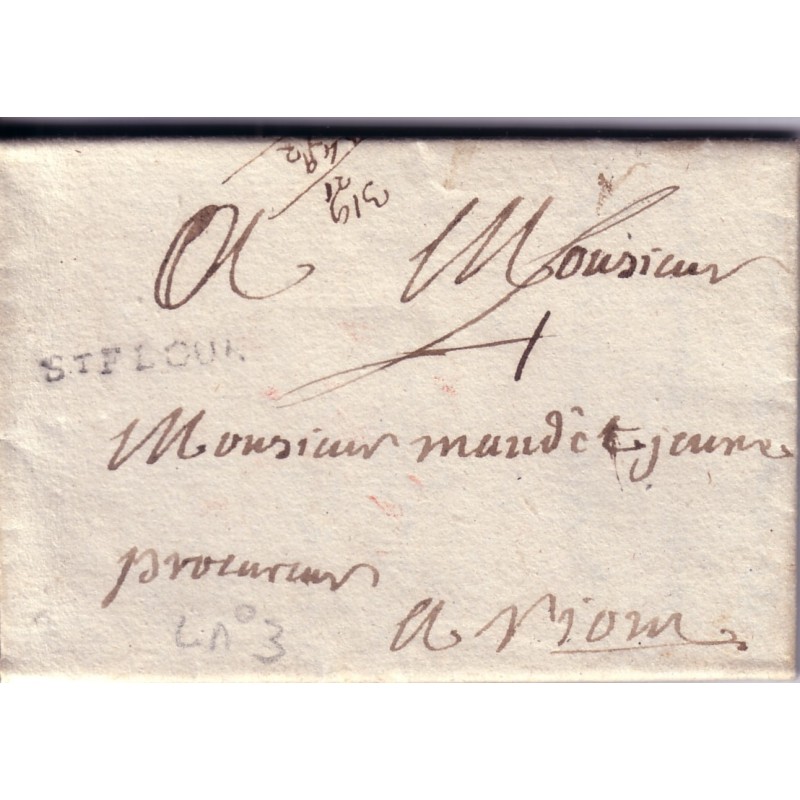 319
21
A Monsieur
4
ST FLOUR
Monsieur mandêt jeune
procureur
a riom
L n° 3